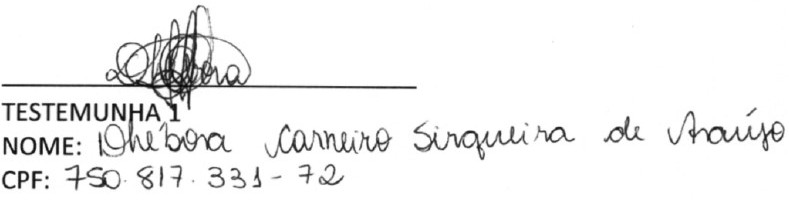 Dhébora
TESTEMUNHA 1
NOME: Dhébora Carneiro Sirqueira de Araújo
CPF: 750.817.331-72